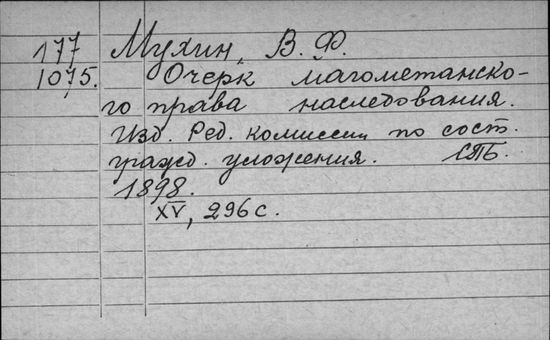 177 Мухин, В. Ф.
1075. Очерк магометанско-
го права наследования.
Изд. Ред. комиссии по сост.
гражд. уложения. СПБ.
1898.
XV, 296 с.